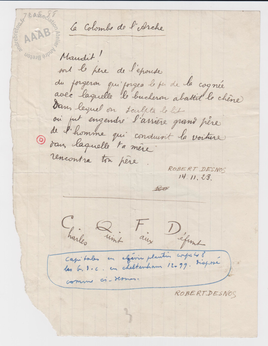 La Colombe de l'Arche
AAAB
Maudit!
soit le père de l'épouse
du forgeron qui forgea le fer de la cognée
avec laquelle le bûcheron abattit le chêne
dans lequel on sculpta le lit
où fut engendré l'arrière grand père
de l'homme qui conduisit la voiture
dans laquelle ta mère
rencontra ton père
ROBERT DESNOS
14.11.23.
C Q F D
Charles Quint Faux Défunt
Capitales en
comme ci-dessus.
ROBERT DESNOS